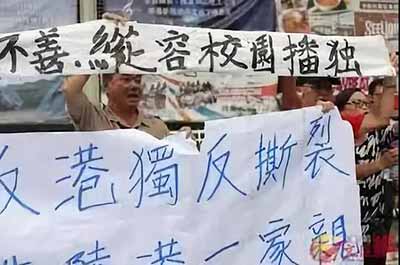 不善縱容校園播独
反港獨反撕裂
陸港一家親